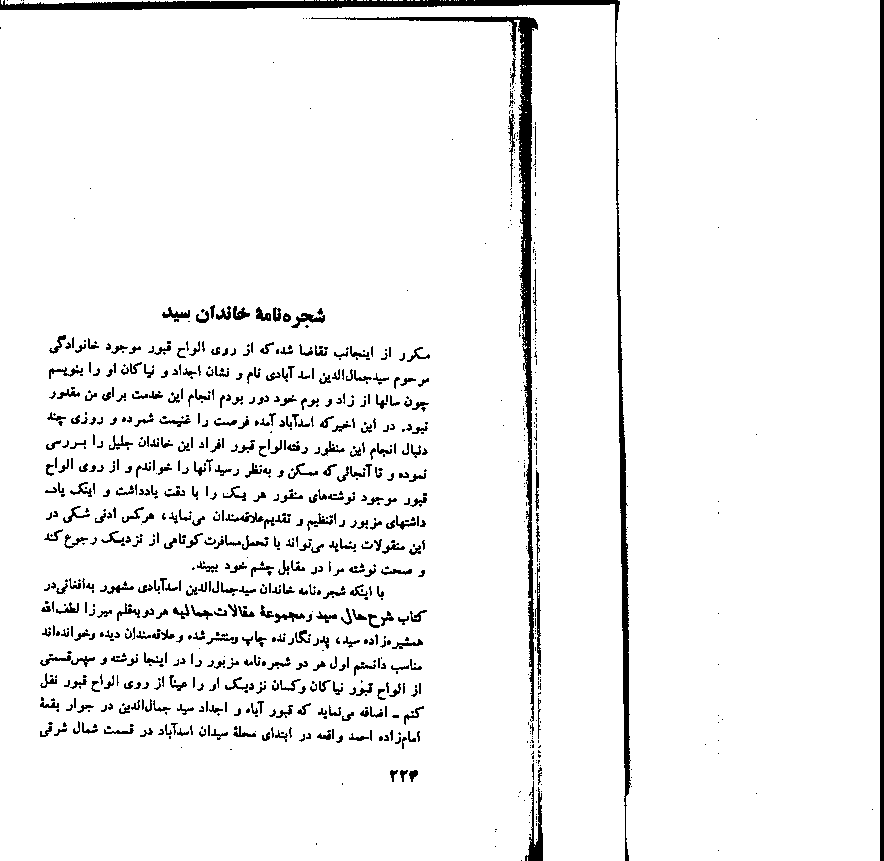 شجره‌نامهٔ خاندان سید
مکرر از اینجانب تقاضا شده که از روی الواح قبور موجود خانوادگی
مرحوم سیدجمال‌الدین اسدآبادی نام و نشان اجداد و نیاکان او را بنویسم
چون سالها از زاد و بوم خود دور بودم انجام این خدمت برای من مقدور
نبود. در این اخیر که اسدآباد آمده فرصت را غنیمت شمرده و روزی چند
دنبال انجام این منظور رفته‌الواح قبور افراد این خاندان جلیل را بررسی
نموده و تا آنجائی که ممکن و به‌نظر رسید آنها را خواندم و از روی الواح
قبور موجود نوشته‌های منقور هر یک را با دقت یادداشت و اینک یاد-
داشتهای مزبور را تنظیم و تقدیم علاقه‌مندان می‌نماید، هرکس ادنی شکی در
این منقولات بنماید می‌تواند با تحمل مسافرت کوتاهی از نزدیک رجوع کند
و صحت نوشته مرا در مقابل چشم خود ببیند.
با اینکه شجره‌نامه خاندان سیدجمال‌الدین اسدآبادی مشهور به‌افغانی در
کتاب شرح‌حال سید و مجموعهٔ مقالات جمالیه هر دو به‌قلم میرزا لطف‌الله
همشیره‌زاده سید، پدر نگارنده چاپ و منتشر شده و علاقه‌مندان دیده و خوانده‌اند
مناسب دانستم اول هر دو شجره‌نامه مزبور را در اینجا نوشته و سپس قسمتی
از الواح قبور نیاکان و کسان نزدیک او را عیناً از روی الواح قبور نقل
کنم ـ اضافه می‌نماید که قبور آباء و اجداد سید جمال‌الدین در جوار بقعهٔ
امام‌زاده احمد واقعه در ابتدای محلهٔ سیدان اسدآباد در قسمت شمال شرقی
۲۲۴